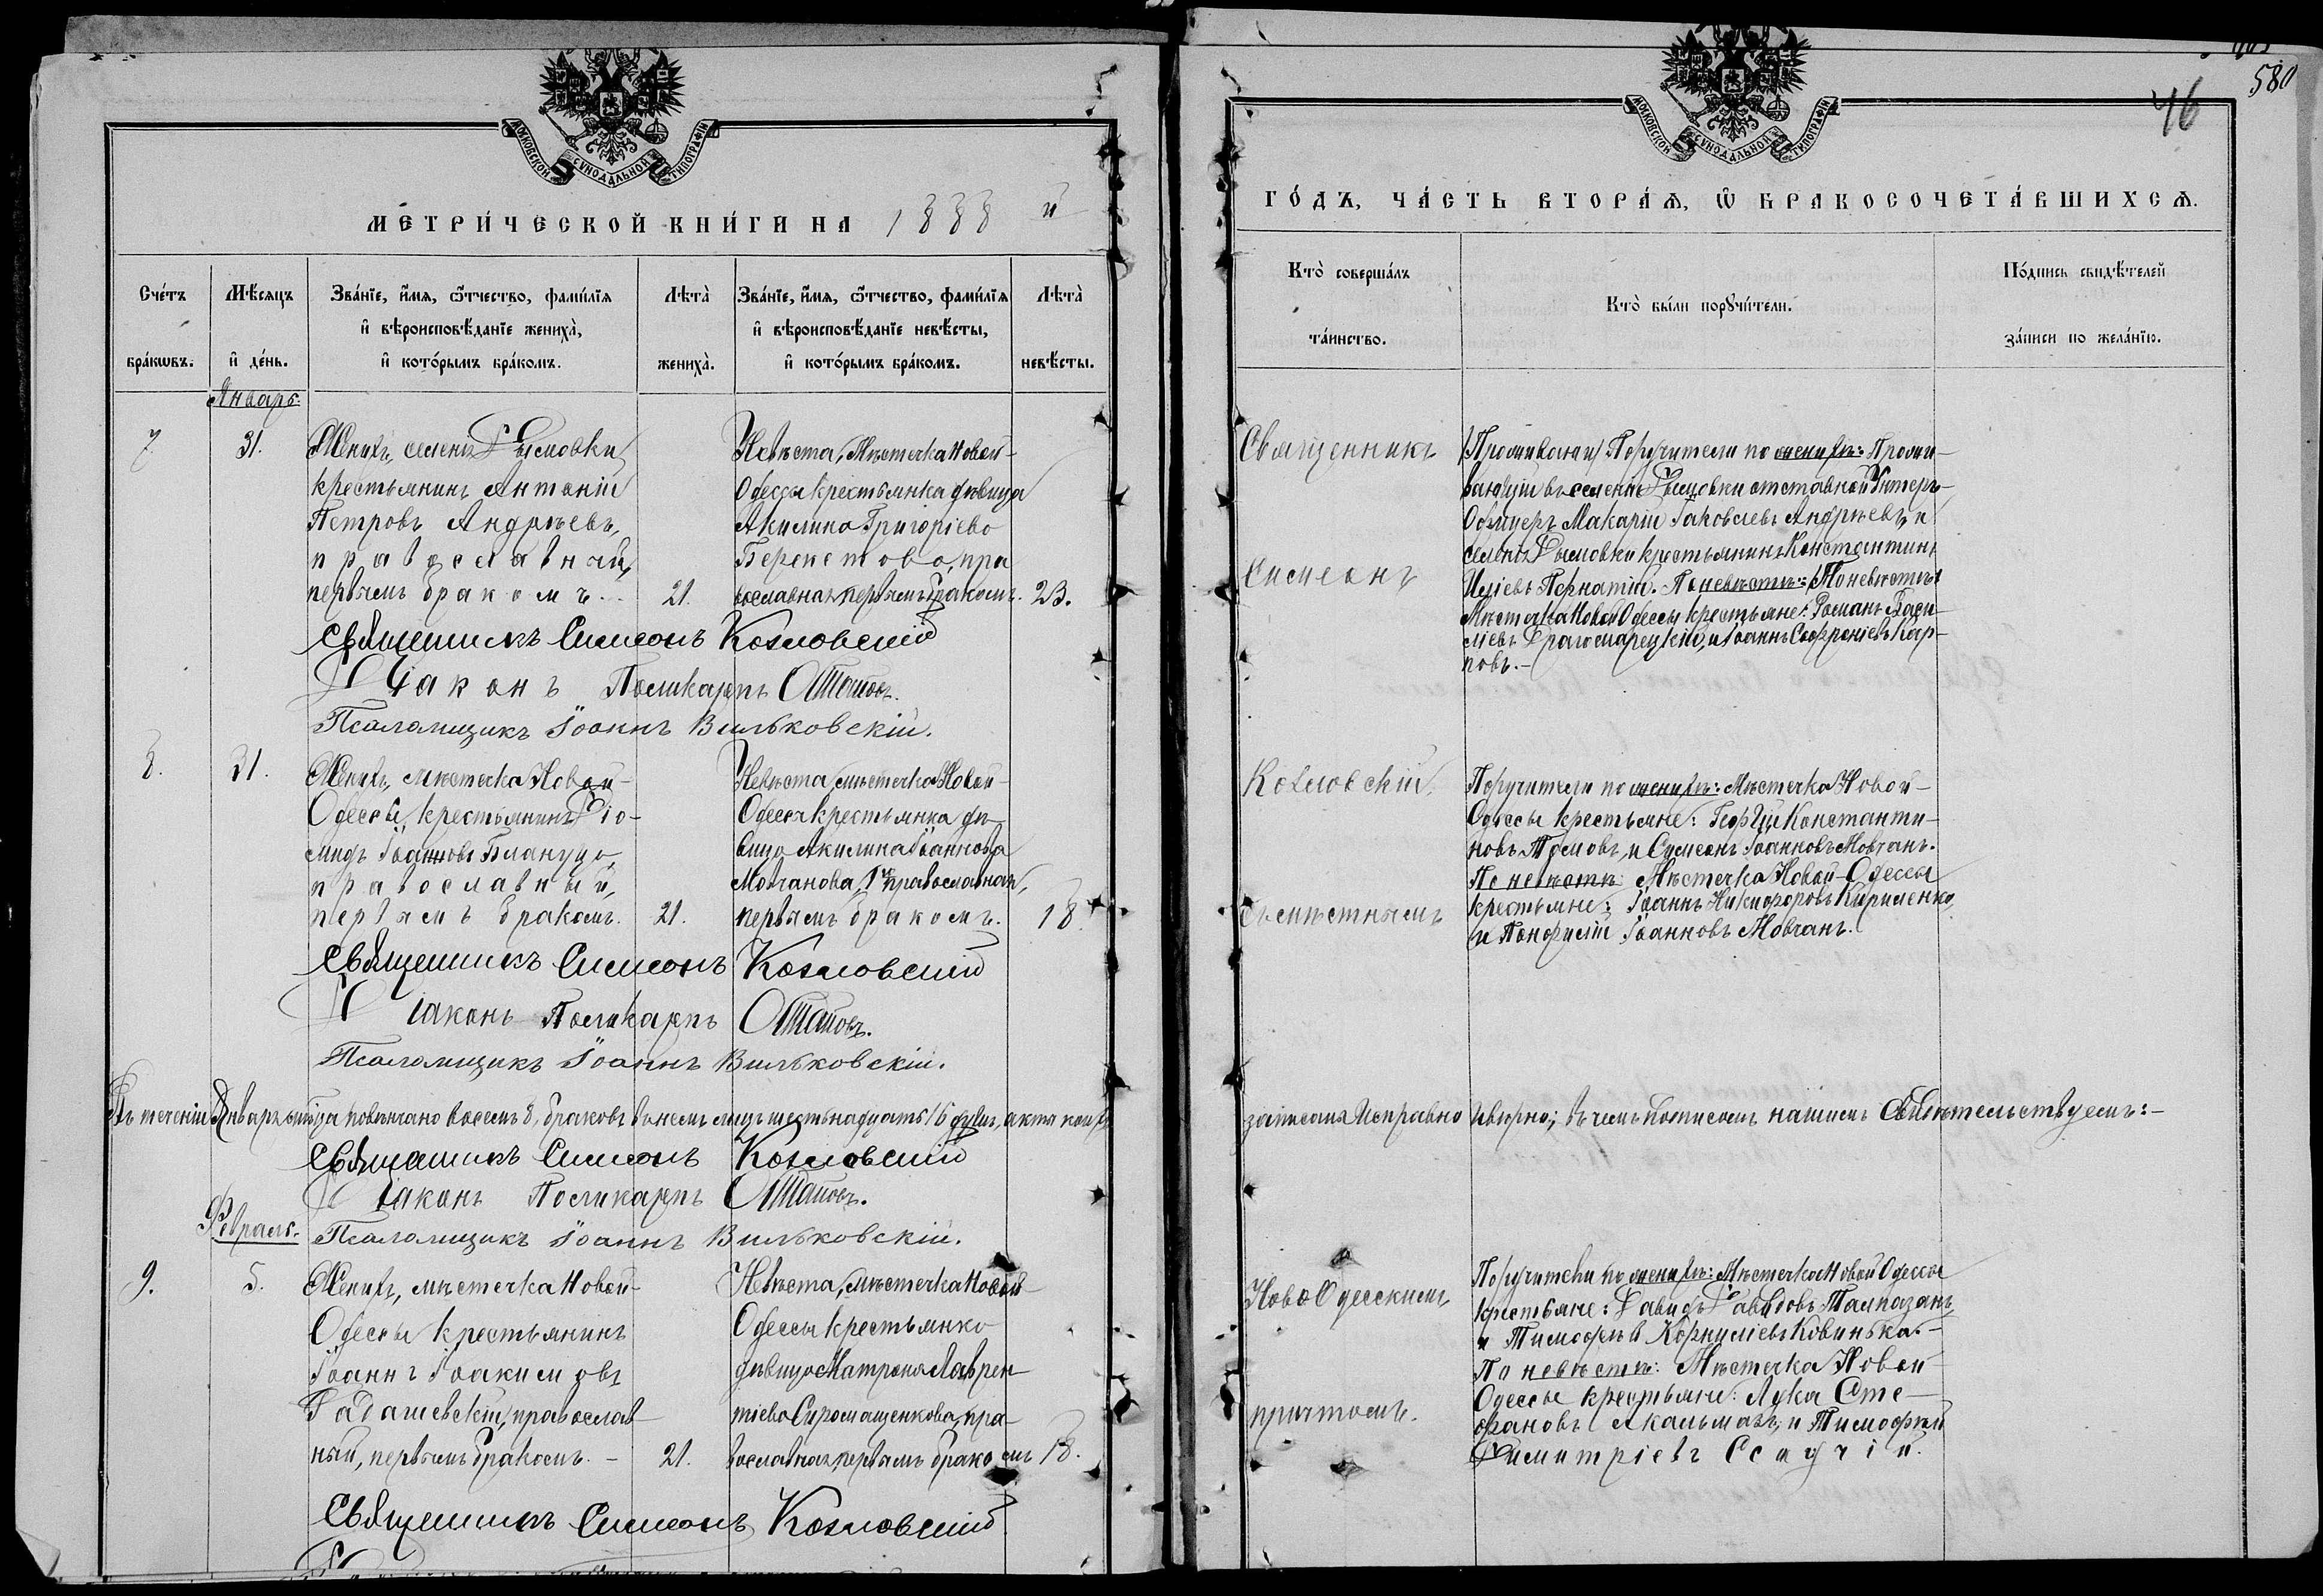 МОСКОВСКОЙ СѴНОДАЛЬНОЙ ТИПОГРАФІИ
МЕТРИ́ЧЕСКОЙ КНИ́ГИ НА 1888 й
Сче́тъ бра́кѡвъ.
Мѣ́сяцъ и҆ де́нь.
Зва́нїе, и҆́мѧ, ѻ҆́тчество, фами́лїѧ
и҆ вѣроисповѣ́данїе жениха̀,
и҆ кото́рымъ бра́комъ.
Лѣта̀ жениха̀.
Зва́нїе, и҆́мѧ, ѻ҆́тчество, фами́лїѧ
и҆ вѣроисповѣ́данїе невѣ́сты,
и҆ кото́рымъ бра́комъ.
Лѣта̀ невѣ́сты.
Январь.
7
31.
Женихъ, селенія Дымовки,
крестьянинъ Антоній
Петровъ Андрѣевъ,
православный,
первымъ бракомъ.
21.
Невѣста, Мѣстечка Новой-
Одессы крестьянка дѣвица
Акилина Григоріева
Берекетова, пра
вославная, первымъ бракомъ.
23.
Священникъ Симеонъ Козловскій
Діаконъ Поликарпъ
Псаломщикъ Іоаннъ Вильковскій.
8.
31.
Женихъ, мѣстечка Новой-
Одессы, крестьянинъ Діо-
мидъ Іоанновъ
православный,
первымъ бракомъ.
21.
Невѣста, мѣстечка Новой-
Одессы крестьянка дѣ-
вица Акилина Іоаннова
Молчанова, православная,
первымъ бракомъ.
18.
Священникъ Симеонъ Козловскій
Діаконъ Поликарпъ
Псаломщикъ Іоаннъ Вильковскій.
Въ теченіи Января мѣсяца повѣнчано восемь 8, браковъ въ нихъ лицъ шестьнадцать 16 душъ, акты коихъ
Священникъ Симеонъ Козловскій
Діаконъ Поликарпъ
Псаломщикъ Іоаннъ Вильковскій.
Февраль.
9.
5.
Женихъ, мѣстечка Новой-
Одессы крестьянинъ
Іоаннъ Іоакимовъ
православ
ный, первымъ бракомъ. -
21.
Невѣста, мѣстечка Новой-
Одессы крестьянка
дѣвица Матрона Лаврен
тіева Сиромащенкова, пра-
вославная, первымъ бракомъ
18.
Священникъ Симеонъ Козловскій
580
46
МОСКОВСКОЙ СѴНОДАЛЬНОЙ ТИПОГРАФІИ
ГО́ДЪ, ЧА́СТЬ ВТОРА́Ѧ, Ѡ҆ БРАКОСОЧЕТА́ВШИХСѦ.
Кто̀ соверша́лъ та́инство.
Кто̀ бы́ли порꙋчи́тели.
По́дпись свидѣ́телей за́писи по жела́нїю.
Священникъ
Симеонъ
Козловскій,
съ мѣстнымъ
Поручители по женихѣ: Прожи-
вающій въ селеніи Дымовки отставной Унтеръ-
Офицеръ Макарій Іаковлевъ Андрѣевъ, и
селенія Дымовки крестьянинъ Константинъ
Иліевъ Пернатій. По невѣстѣ:
Мѣстечка Новой Одессы крестьяне: Романъ Васи-
ліевъ Драгомарецкій, и Іоаннъ Софроніевъ Кар-
повъ.-
Поручители по женихѣ: Мѣстечка Новой-
Одессы крестьяне: Георгій Константи-
новъ Томовъ, и Симеонъ Іоанновъ Мовчанъ.
По невѣстѣ: Мѣстечка Новой-Одессы
крестьяне: Іоаннъ Никифоровъ Кириленко,
и Іоанновъ Мовчанъ.
записаны исправно и вѣрно; въ чемъ подписомъ нашимъ Свидѣтельствуемъ:-
НовоОдесскимъ
причтомъ.
Поручители по женихѣ: Мѣстечка Новой Одессы
крестьяне: Давидъ Давидовъ Талпазанъ,
и Тимофѣй Корниліевъ Ковинька.-
По невѣстѣ: Мѣстечка Новой
Одессы крестьяне: Лука Сте-
фановъ Акальмазъ, и Тимофѣй
Димитріевъ